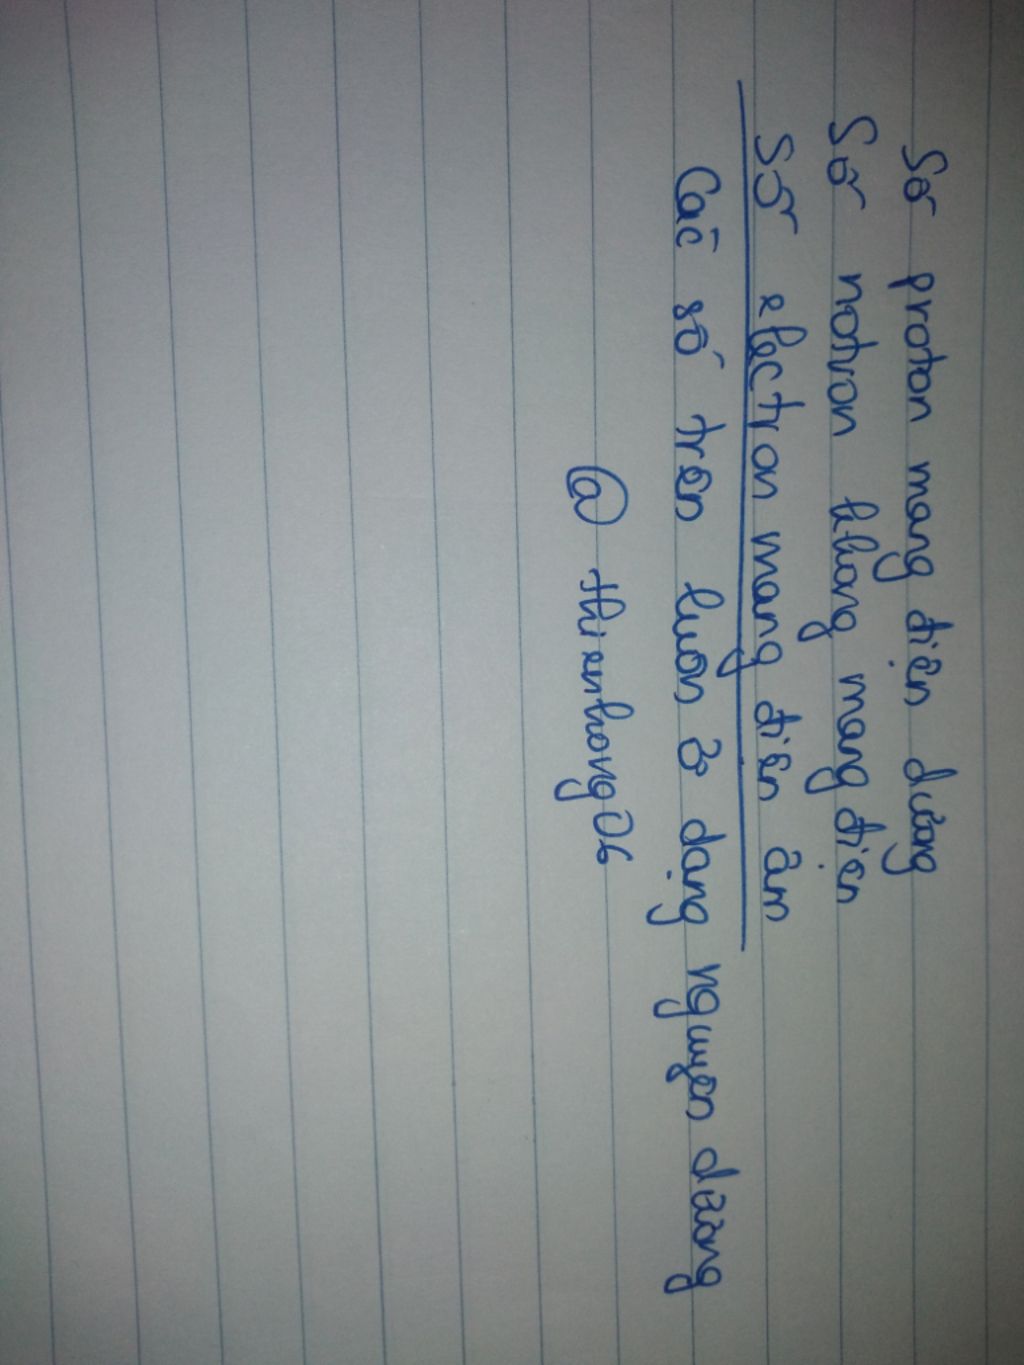 Số proton mang điện dương
Số notron không mang điện
Số electron mang điện âm
Các số trên luôn ở dạng nguyên dương
@thienhong06